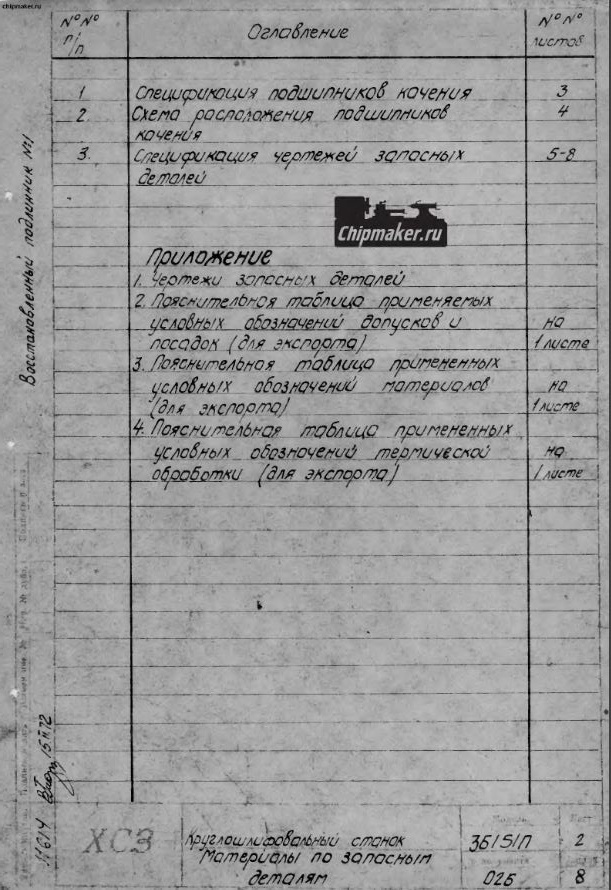 chipmaker.ru
№№ п/п
Оглавление
№№ листов
1 Спецификация подшипников качения 3
2. Схема расположения подшипников 4
качения
3. Спецификация чертежей запасных 5-8
деталей
Chipmaker.ru
Приложение
1. Чертежи запасных деталей
2. Пояснительная таблица применяемых
условных обозначений допусков и на
посадок (для экспорта) 1 листе
3. Пояснительная таблица примененных
условных обозначений материалов на
(для экспорта) 1 листе
4. Пояснительная таблица примененных
условных обозначений термической на
обработки (для экспорта) 1 листе
Восстановленный подлинник №1
ХСЗ
Круглошлифовальный станок 3Б151П 2
Материалы по запасным
деталям 02Б 8